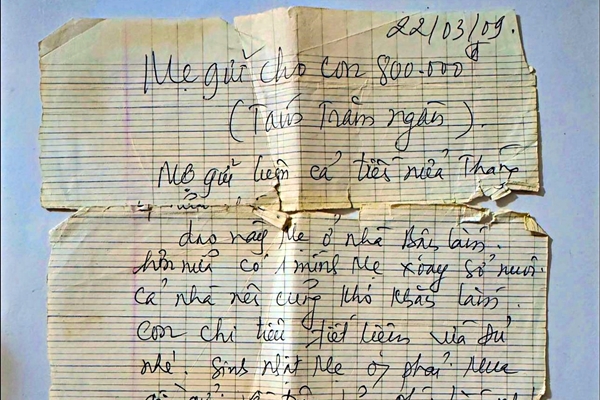 22/03/09.
Mẹ gửi cho con 800.000
(Tám Trăm ngàn).
Mẹ gửi luôn cả tiền nửa Tháng
dạo này Mẹ ở nhà Bận lắm.
hơn nữa có 1 mình Mẹ xoay sở nuôi
cả nhà nên cũng khó khăn lắm.
con chi tiêu tiết kiệm vừa đủ
nhé. Sinh nhật Mẹ phải mua